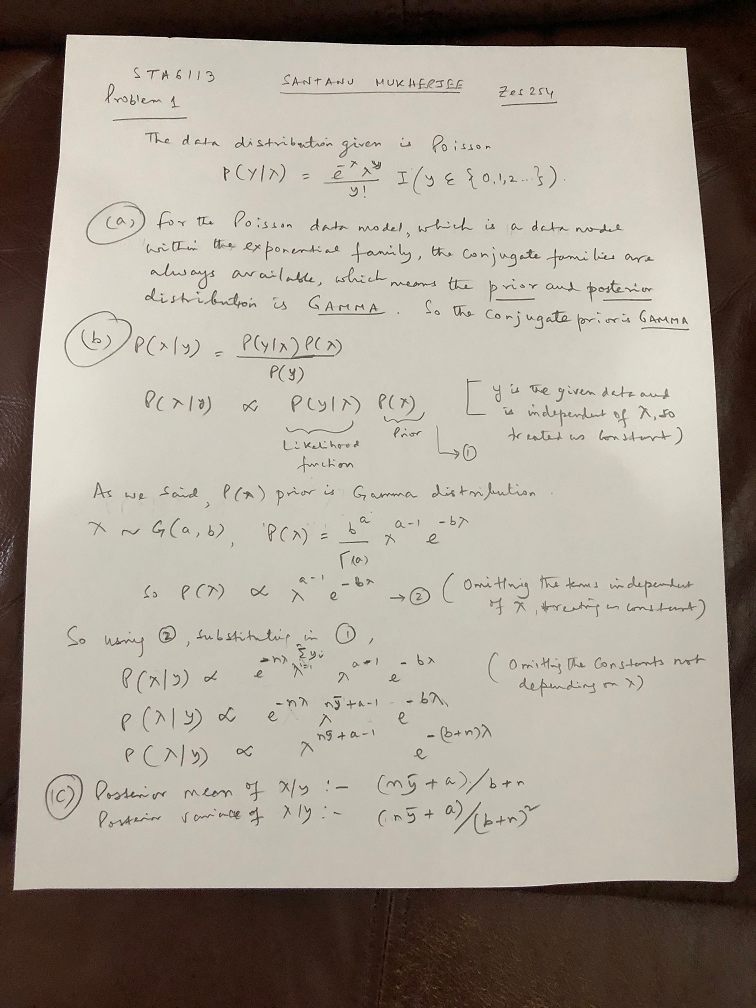 STA6113
SANTANU MUKHERJEE
Zes254
Problem 1
The data distribution given is Poisson
P(y|λ) = e^-λ λ^y / y! I(y ε {0,1,2...}).
(a) For the Poisson data model, which is a data model
within the exponential family, the conjugate families are
always available, which means the prior and posterior
distribution is GAMMA. So the conjugate prior is GAMMA
(b) P(λ|y) = P(y|λ) P(λ) / P(y)
P(λ|y) ∝ P(y|λ) P(λ)
[y is the given data and
is independent of λ, so
treated as constant)
Likelihood
function
Prior
→ ①
As we said, P(λ) prior is Gamma distribution.
λ ~ G(a,b), P(λ) = b^a / Γ(a) λ^a-1 e^-bλ
So P(λ) ∝ λ^a-1 e^-bλ → ② (Omitting the terms independent
of λ, treating as constant)
So using ②, substituting in ①,
P(λ|y) ∝ e^-nλ λ^Σ_{i=1}^n yi λ^a-1 e^-bλ (Omitting the constants not
depending on λ)
P(λ|y) ∝ e^-nλ λ^nȳ+a-1 e^-bλ
P(λ|y) ∝ λ^nȳ+a-1 e^-(b+n)λ
(c) Posterior mean of λ|y :- (nȳ + a)/b+n
Posterior variance of λ|y :- (nȳ + a)/(b+n)²